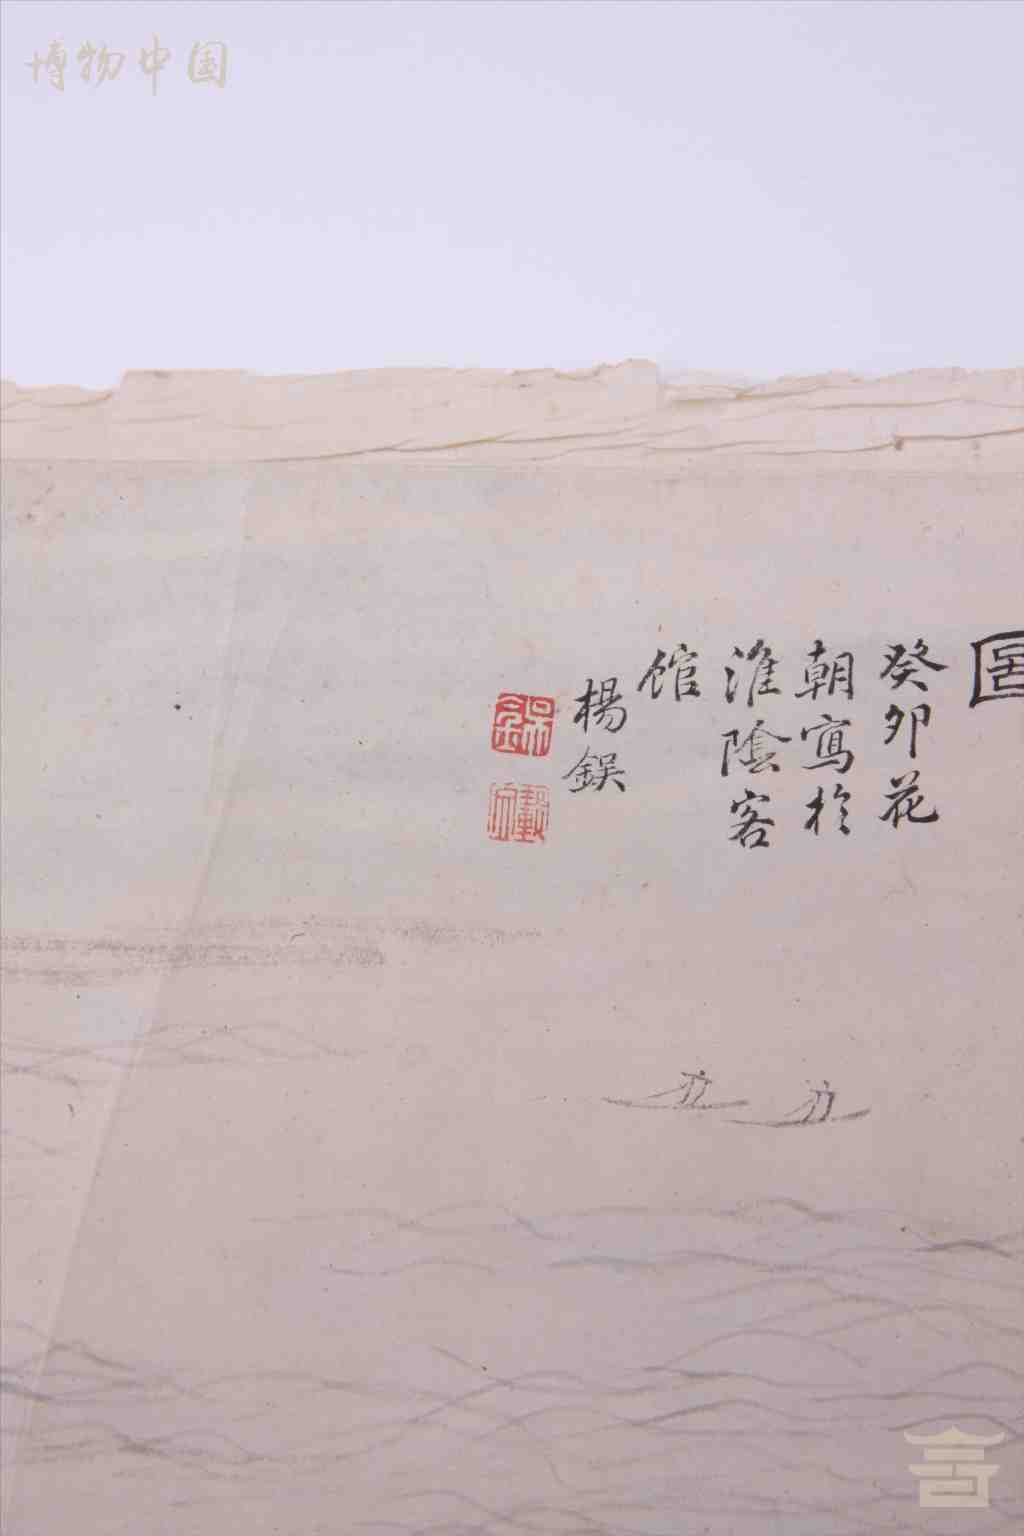 博物中国
圖
癸卯花
朝寫於
淮陰客
館
楊鋘